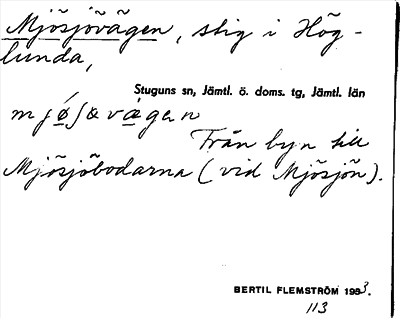 Mjösjövägen, stig i Hög-
lunda,
Stuguns sn, Jämtl. ö. doms. tg, Jämtl. län
mjǿʃøvägen
Från byn till
Mjösjöbodarna (vid Mjösjön).
BERTIL FLEMSTRÖM 1953.
113